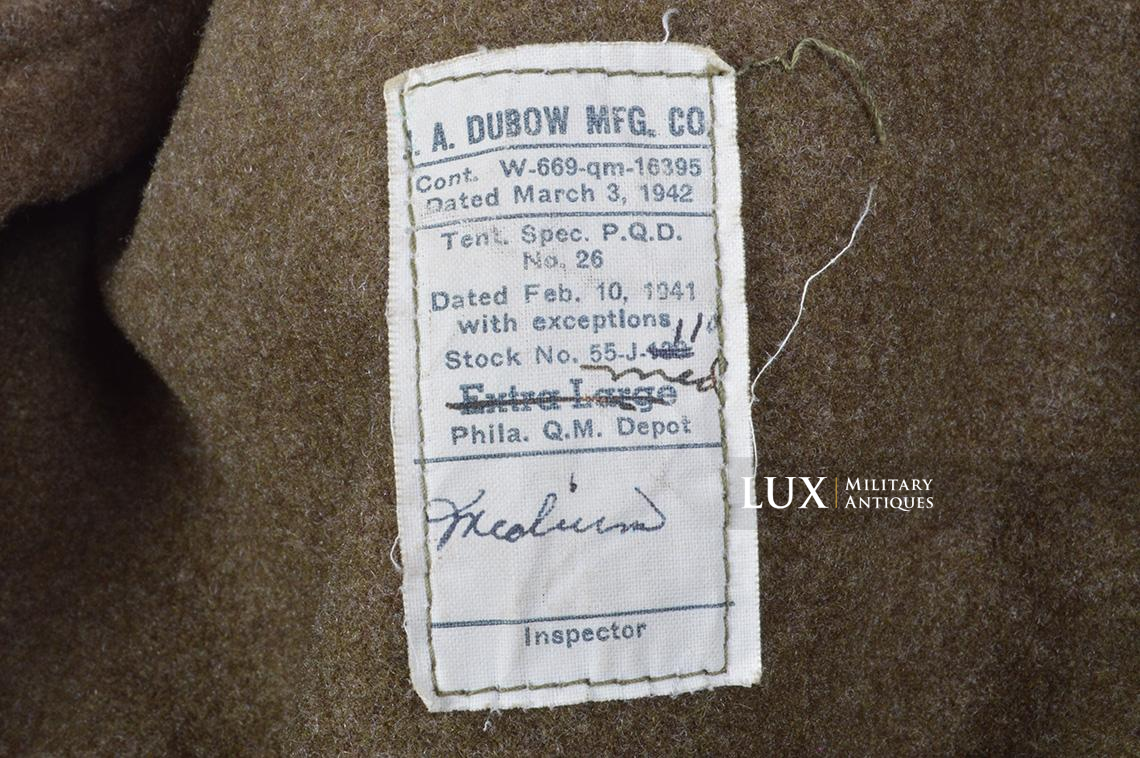 . A. DUBOW MFG. CO
Cont. W-669-qm-16395
Dated March 3, 1942
Tent. Spec. P.Q.D.
No. 26
Dated Feb. 10, 1941
with exceptions
110
Stock No. 55-J-
med
Extra Large
Phila. Q.M. Depot
Medium
Inspector
LUX MILITARY
ANTIQUES